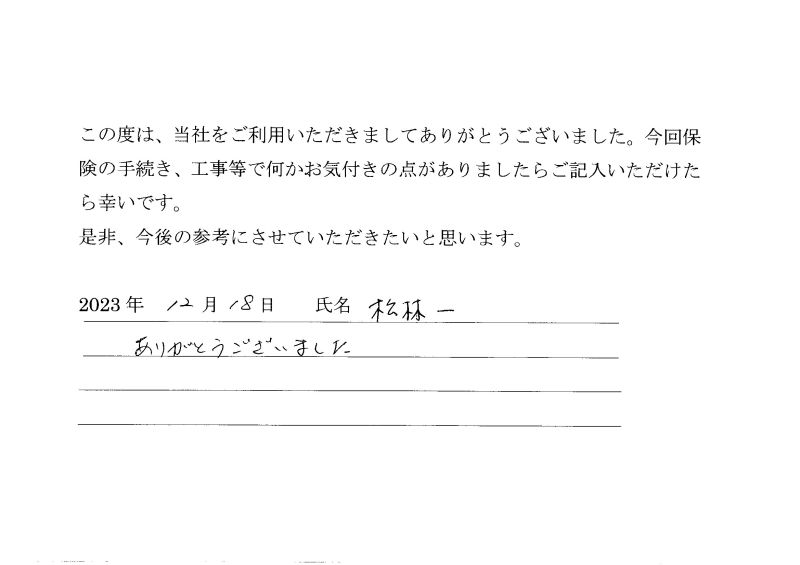 この度は、当社をご利用いただきましてありがとうございました。今回保
険の手続き、工事等で何かお気付きの点がありましたらご記入いただけた
ら幸いです。
是非、今後の参考にさせていただきたいと思います。
2023 年 12 月 18 日 氏名 松林 一
ありがとうございました